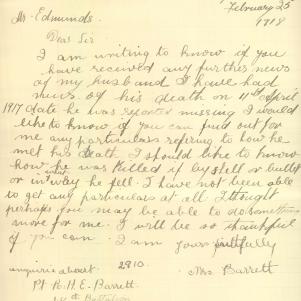 February 25
1918
Mr. Edmunds.
Dear Sir
I am writing to know if you
have received any further news
of my husband I have had
news of his death on 11th April
1917 date he was reported missing I would
like to know if you can find out for
me any particulars refering to how he
met his death I should like to know
how he was killed if by shell or bullet
or in what way he fell. I have not been able
to get any particulars at all I thought
perhaps you may be able to do something
more for me. I will be so thankful
if you can. I am yours faithfully
enquirie about. 2910. Mrs Barrett
Pt R. H. E. Barrett
Battalion